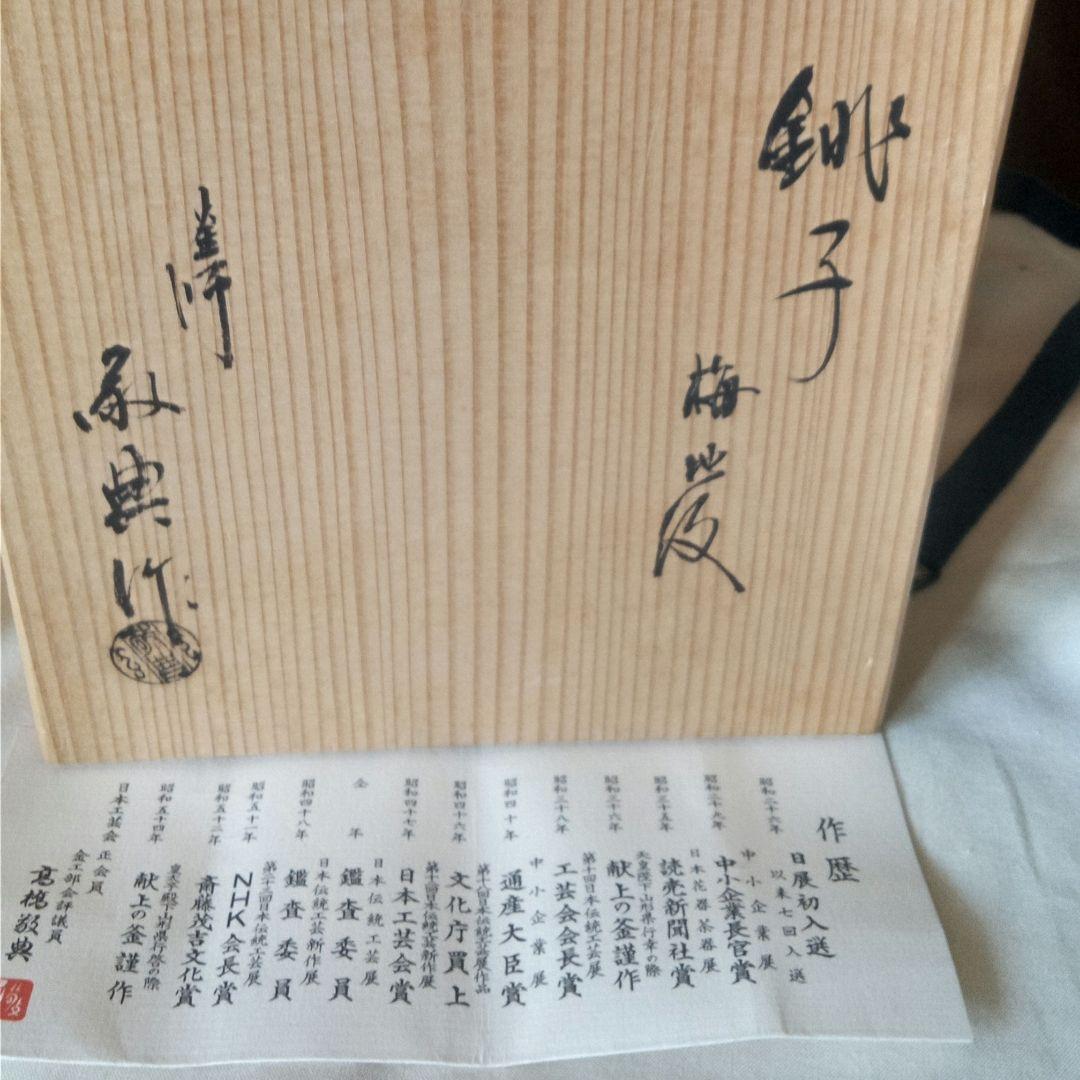 銚子
梅地文
釜師
敬典作
作歴
昭和二十六年
日展初入選
以来七回入選
昭和二十九年
中小企業展
中小企業長官賞
昭和三十五年
日本花器茶器展
読売新聞社賞
昭和三十六年
天皇陛下山形県行幸の際
献上の釜謹作
昭和三十八年
第十回日本伝統工芸展
工芸会会長賞
昭和四十年
中小企業展
通産大臣賞
昭和四十六年
第十八回日本伝統工芸展作品
文化庁買上
昭和四十七年
第十回日本伝統工芸新作展
日本工芸会賞
仝年
日本伝統工芸展
鑑査委員
昭和四十八年
日本伝統工芸新作展
鑑査委員
昭和五十一年
第二十三回日本伝統工芸展
NHK会長賞
昭和五十二年
斎藤茂吉文化賞
昭和五十四年
皇太子殿下山形県行啓の際
献上の釜謹作
日本工芸会 正会員
金工部会評議員
高橋敬典